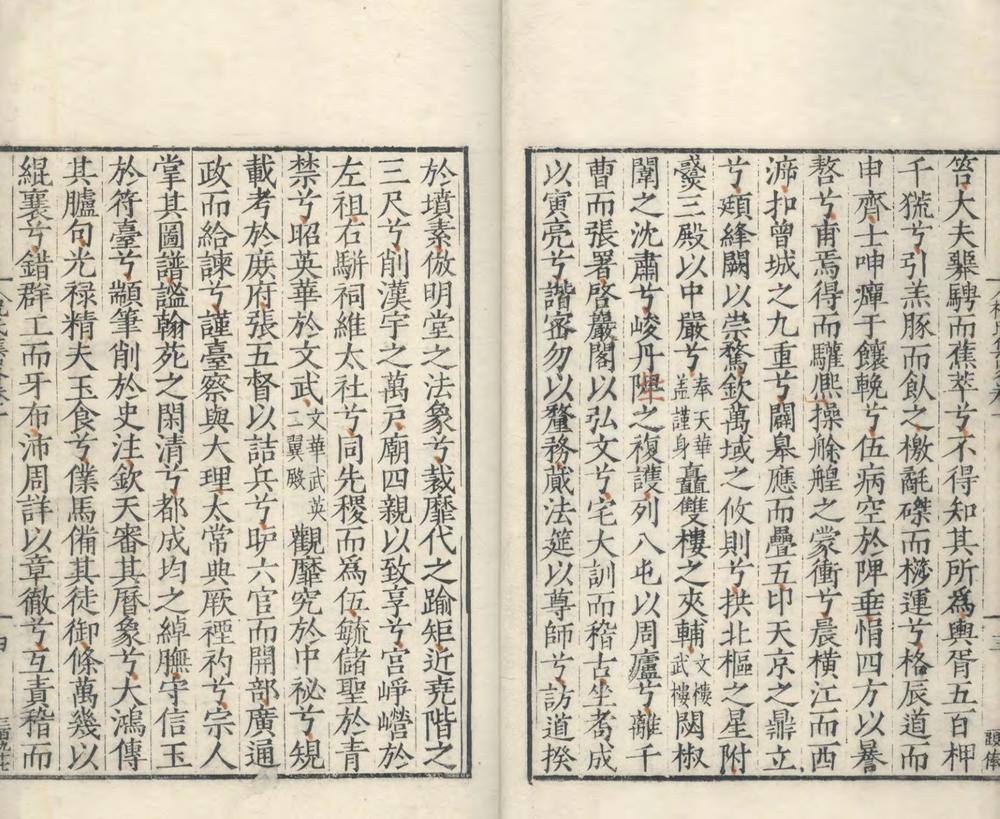 笞大夫騄騁而蕉萃兮不得知其所爲輿胥五百柙
千猇兮引羔豚而飲之檄毻磔而𣜩運兮格辰道而
申齊士呻癉于饟輓兮伍病空於陴垂悁四方以暴
嗸兮甫焉得而驩熙操艅艎之蒙衝兮晨横江而西
渧扣曾城之九重兮闢皋應而疊五卬天京之鼎立
兮頫絳闕以崇騖欽萬域之攸則兮拱北樞之星附
爕三殿以中嚴兮
奉天華
蓋謹身
矗雙樓之夾輔
文樓
武樓
閎椒
闈之沈肅兮峻丹陛之複護列八屯以周廬兮離千
曹而張署啓巖閣以弘文兮宅大訓而稽古坐耇成
以寅亮兮諧密勿以釐務蕆法筵以尊師兮訪道揆
於墳素倣明堂之法象兮裁靡代之踰矩近堯階之
三尺兮削漢宇之萬戸廟四親以致享兮宫崢嶸於
左祖右駢祠維太社兮同先稷而爲伍毓儲聖於青
禁兮昭英華於文武
文華武英
二翼殿
觀靡究於中祕兮規
載考於庶府張五督以詰兵兮眆六官而開部廣通
政而給諫兮謹臺察與大理太常典厥禋礿兮宗人
掌其圖譜謐翰苑之閑清兮都成均之綽膴守信玉
於符臺兮顓筆削於史注欽天審其曆象兮大鴻傳
其臚句光禄精夫玉食兮僕馬備其徒御條萬幾以
緄襄兮錯群工而牙布沛周詳以章徹兮互責稽而